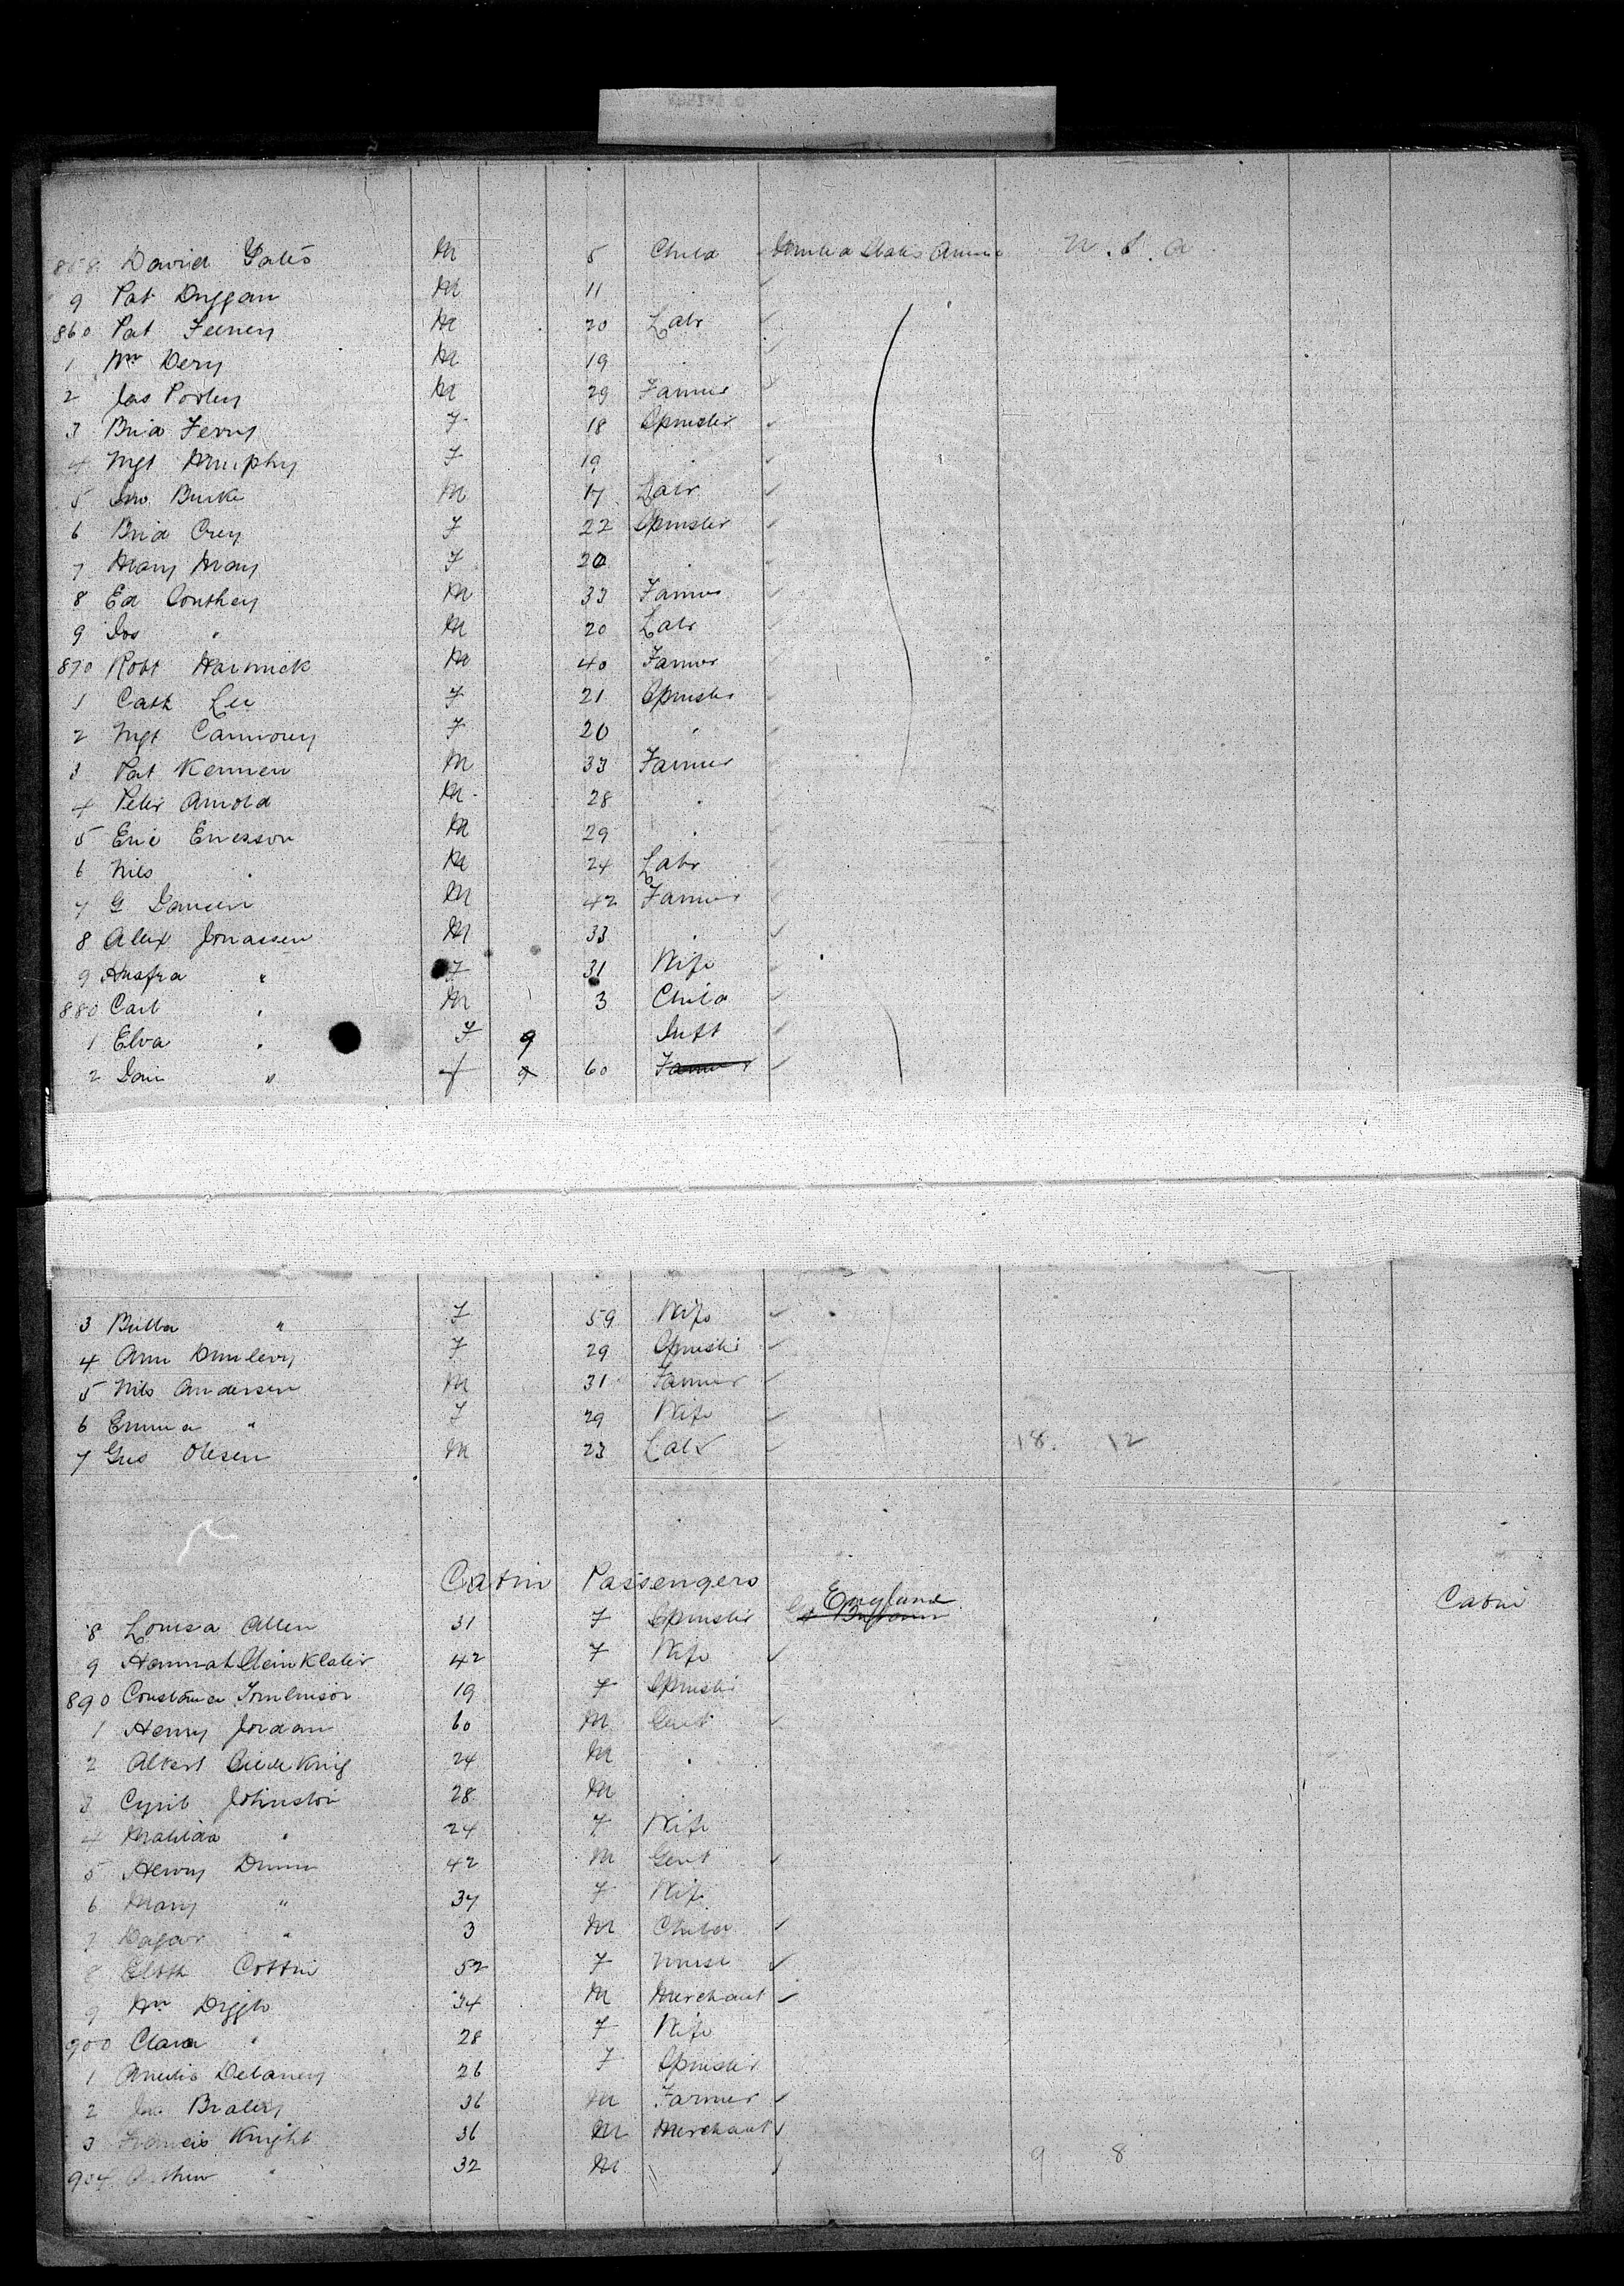 858 David Yates M 5 Child United States America U.S.A
9 Pat Duggan M 11 ✓
860 Pat Feeney M 20 Labr ✓
1 Wm Dery M 19 ✓
2 Jas M 29 Farmer ✓
3 Brid Ferry F 18 Spinster ✓
4 Mgt Murphy F 19 ✓
5 Jno Burke M 17 Labr ✓
6 Brid F 22 Spinster ✓
7 Mary May F 20 ✓
8 Ed Conthey M 33 Farmer ✓
9 Jos " M 20 Labr ✓
870 Robt M 40 Farmer
1 Cath Lee F 21 Spinster
2 Mgt F 20 " ✓
3 Pat Kennen M 33 Farmer ✓
4 Peter Arnold M 28
5 Eric Ericsson M 29
6 Nils " M 24 Labr
7 G M 42 Farmer
8 Alex Jonassen M 33 ✓
9 " F 31 Wife
880 Carl " M 3 Child ✓
1 Elva " F 9 Inft ✓
2 " 60 Farmer ✓
3 " F 59 Wife ✓
4 Ann Dunlevy F 29 Spinster ✓
5 Nils Andersen M 31 Farmer ✓
6 Emma " F 29 Wife ✓
7 Gus Olesen M 23 Labr ✓ 18. 12
Cabin Passengers
England
8 Louisa Allen 31 F Spinster Gt Britain Cabin
9 Hannah 42 F Wife ✓
890 Constance Tomlinson 19 F Spinster
1 Henry Jordan 60 M Gent ✓
2 Albert 24 M "
3 Cyril Johnston 28 M
4 Matilda " 24 F Wife
5 Henry Dunn 42 M Gent ✓
6 Mary " 37 F Wife
7 " 3 M Child ✓
8 Elbth 52 F Nurse ✓
9 Wm Diggle 34 M Merchant ✓
900 Clara " 28 F Wife
1 Delaney 26 F Spinster
2 36 M Farmer ✓
3 Francis Knight 36 M Merchant ✓
904 Arthur " 32 M " ✓ 9 8